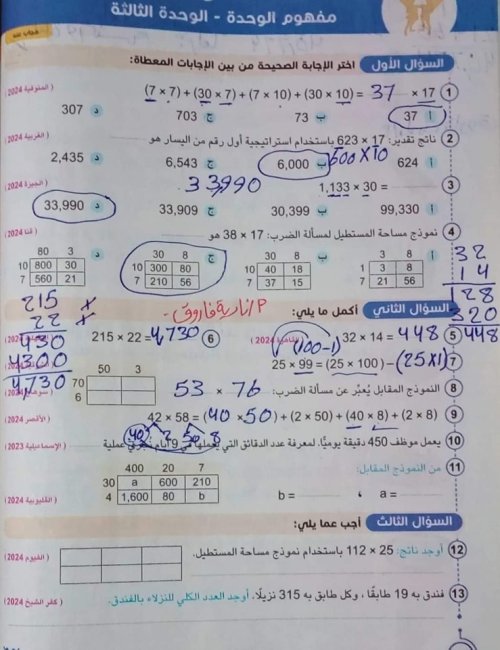 مفهوم الوحدة - الوحدة الثالثة
مجاب عنه
السؤال الأول اختر الإجابة الصحيحة من بين الإجابات المعطاة:
1 (7 × 7) + (30 × 7) + (7 × 10) + (30 × 10) = 37 × 17 (المنوفية 2024)
أ 37 ب 73 ج 703 د 307
2 ناتج تقدير: 17 × 623 باستخدام استراتيجية أول رقم من اليسار هو (الغربية 2024)
600 × 10
أ 624 ب 6,000 ج 6,543 د 2,435
3 1,133 × 30 = 33,990 (الجيزة 2024)
أ 99,330 ب 30,399 ج 33,909 د 33,990
4 نموذج مساحة المستطيل لمسألة الضرب: 17 × 38 هو (قنا 2024)
أ 3 8
1 3 8
7 21 56
ب 30 8
10 40 18
7 37 15
ج 30 8
10 300 80
7 210 56
د 80 3
10 800 30
7 560 21
32
14
128
320
448
السؤال الثاني أكمل ما يلي:
م/نادية فاروق
5 32 × 14 = 448
6 215 × 22 = 4,730
215
22
430
4300
4,730
(100-1)
7 25 × 99 = (25 × 100) - (25×1)
8 النموذج المقابل يُعبّر عن مسألة الضرب: 76 × 53
50 3
70
6
9 42 × 58 = (40 × 50) + (2 × 50) + (40 × 8) + (2 × 8) (الأقصر 2024)
40 2 50 8
10 يعمل موظف 450 دقيقة يوميًا. لمعرفة عدد الدقائق التي يعملها في 9 أيام نجري عملية (الإسماعيلية 2023)
11 من النموذج المقابل: (القليوبية 2024)
a = ، b =
400 20 7
30 a 600 210
4 1,600 80 b
السؤال الثالث أجب عما يلي:
12 أوجد ناتج: 25 × 112 باستخدام نموذج مساحة المستطيل. (الفيوم 2024)
13 فندق به 19 طابقًا، وكل طابق به 315 نزيلًا. أوجد العدد الكلي للنزلاء بالفندق. (كفر الشيخ 2024)